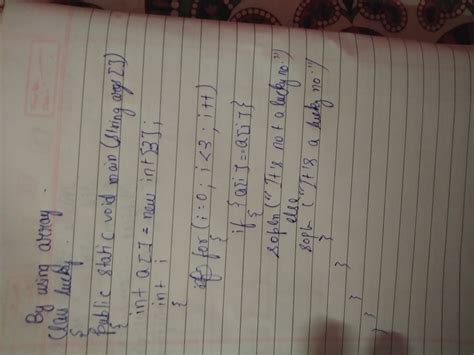 By using array.
Class lucky
{
Public static void main (string args [])
{
int a [] = new int [3];
int i
{
for (i=0; i<3; i++)
{
if { a[i] = a[i] {
{
sopln (" It's not a lucky no.")
else
sopln (" It's a lucky no.")
}
}
}
}